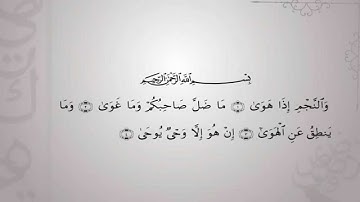 بِسْمِ اللَّهِ الرَّحْمَٰنِ الرَّحِيمِ
وَالنَّجْمِ إِذَا هَوَىٰ ۝١ مَا ضَلَّ صَاحِبُكُمْ وَمَا غَوَىٰ ۝٢ وَمَا
يَنطِقُ عَنِ الْهَوَىٰ ۝٣ إِنْ هُوَ إِلَّا وَحْيٌ يُوحَىٰ ۝٤